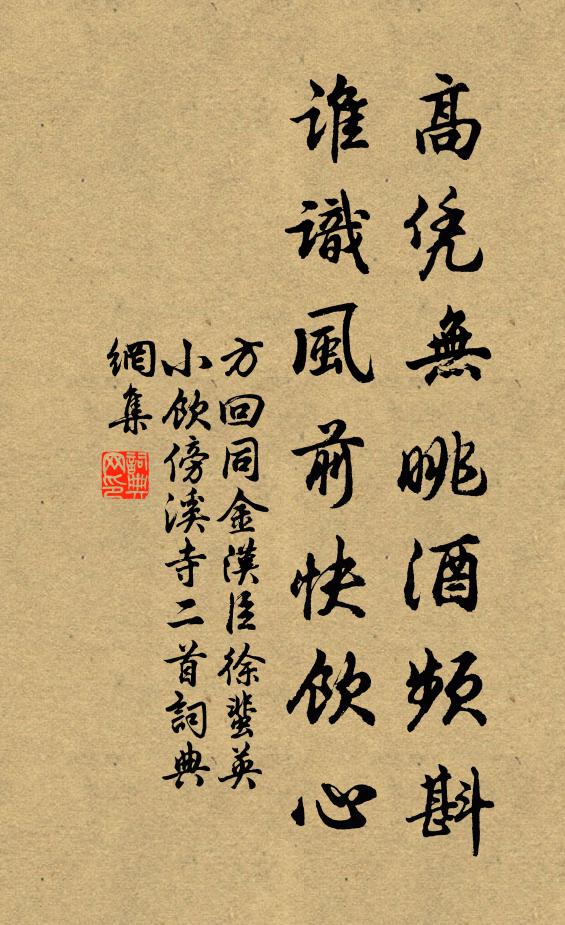 高凭無眺酒頻斟
誰識風前快飲心
方回同金漢臣徐蜚英
小飲傍溪寺二首詞典
網集
詞典
网印